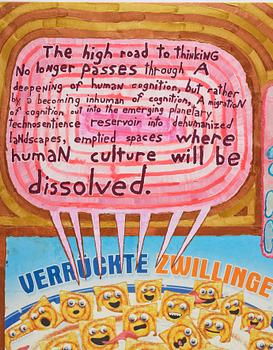 The high road to thinking
No longer passes through A
deepening of human cognition, but rather
by a becoming inhuman of cognition, A migration
of cognition out into the emerging planetary
technosentience reservoir into dehumanized
landscapes, emptied spaces where
humaN culture will be
dissolved.
VERRÜCKTE ZWILLINGE